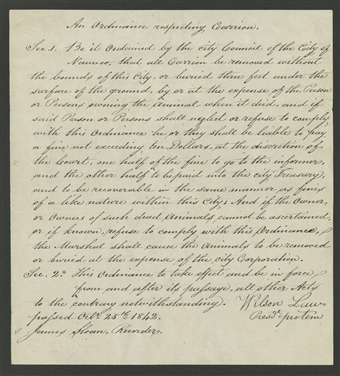 An Ordinance respecting Carrion.
Sec. 1. Be it Ordained by the City Council of the City of
Nauvoo, that all Carrion be removed without
the bounds of this City or buried three feet under the
surface of the ground, by or at the expense of the Person
or Persons owning the animal when it died, and if
said Person or Persons shall neglect or refuse to comply
with this Ordinance he or they shall be liable to pay
a fine not exceeding ten Dollars, at the discretion of
the Court, one half of the fine to go to the informer,
and the other half to be paid into the city Treasury,
and to be recoverable in the same manner as fines
of a like nature within this City; And if the Owner,
or Owners of such dead Animals, cannot be ascertained,
or if known, refuse to comply with this Ordinance,
the Marshal shall cause the Animals to be removed
or buried at the expense of the city Corporation.
Sec. 2. This Ordinance to take effect and be in force
from and after its passage, all other Acts
to the contrary notwithstanding. Wilson Law
passed Octr. 25th 1842. Presdt. protem
James Sloan, Recorder.